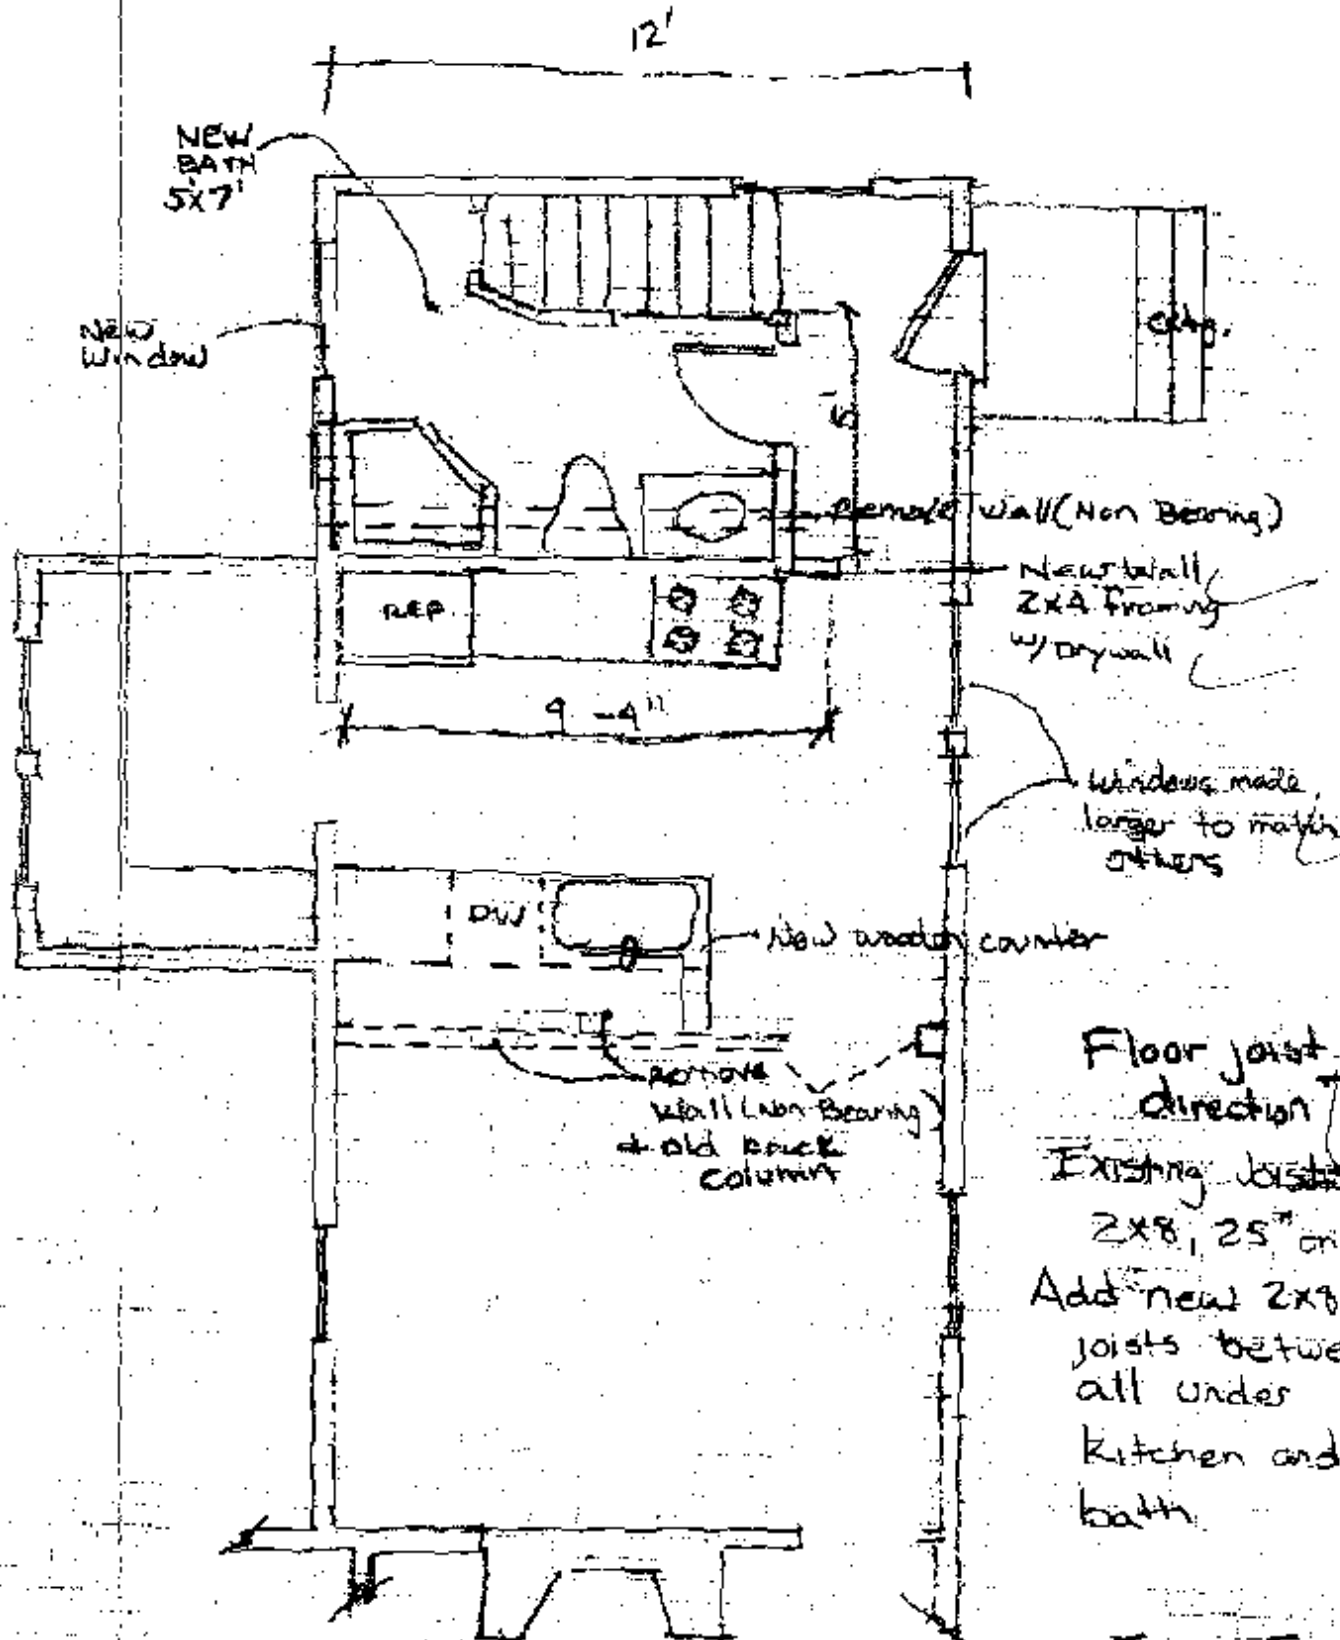 12'
NEW
BATH
5'x7'
New
Window
extg.
5'
Remove Wall (Non Bearing)
New Wall
2x4 Framing
w/ Drywall
REF
9'-4"
Windows made
larger to match
others
DW
New wooden counter
Remove
Wall (Non Bearing)
& old brick
column
Floor joist
direction
Existing Joists
2x8, 25" on
Add new 2x8
joists betwe
all under
kitchen and
bath